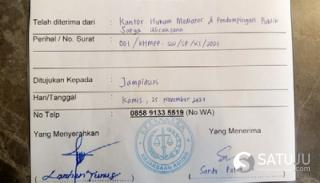 Telah diterima dari : Kantor Hukum Mediator & Pendampingan Publik
Surya Wicaksana
Perihal / No. Surat : 001/KHMPP-SW/SP/XI/2021
Ditujukan Kepada : Jampidsus
Hari/Tanggal : Kamis, 25 November 2021
No Telp : 0858 9133 5519 (No WA)
Yang Menyerahkan
Yang Menerima
SATUJU